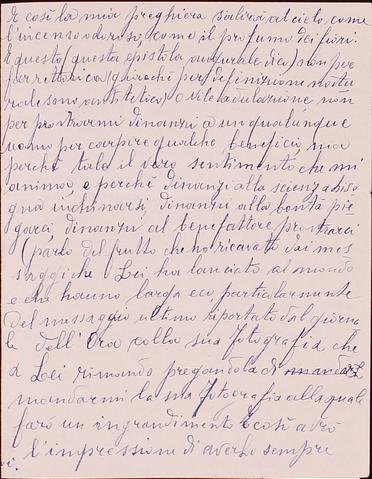 E così la mia preghiera salirà al cielo come
l'incenso odoroso, come il profumo dei fiori.
E questo (questa epistola augurale dico) non per
far rettorica (giacchè per definizione natu
rale sono antitetica) o vile adulazione non
per prostrarmi dinanzi a un qualunque
uomo per carpire qualche beneficio, ma
perchè tale il vero sentimento che mi
anima, e perchè dinanzi alla scienza biso
gna inchinarsi, dinanzi alla bontà pie
garci, dinanzi al benefattore prostrarci
(parlo del frutto che ho ricavato dai mes
saggi che Lei ha lanciato al mondo
e che hanno larga eco particolarmente
del messaggio ultimo riportato dal giorna
le dell'Ora colla sua fotografia che
a Lei rimando pregandola di
mandarmi la sua fotografia alla quale
farò un ingrandimento e così avrò
l'impressione di averlo sempre
vi.